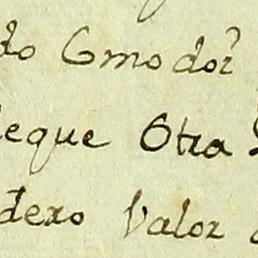 do Gmo dor
eque Otra
dero Valor